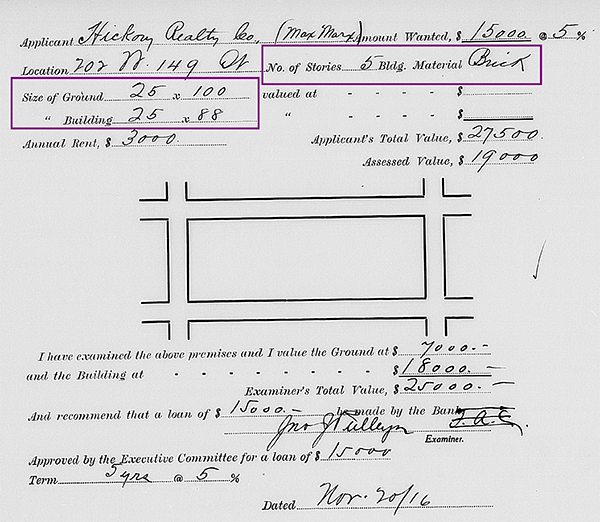 Applicant Hickory Realty Co, (Max Marx) Amount Wanted, $ 15000 @ 5 %
Location 202 W. 149 St No. of Stories 5 Bldg. Material Brick
Size of Ground 25 x 100 valued at - - - - $
" Building 25 x 88 " - - - - $
Annual Rent, $ 3000 Applicant's Total Value, $ 27500
Assessed Value, $ 19000
I have examined the above premises and I value the Ground at $ 7000.-
and the Building at - - - - - - - $ 18000.-
Examiner's Total Value, $ 25000.-
And recommend that a loan of $ 15000.- be made by the Bank
Examiner.
Approved by the Executive Committee for a loan of $ 15000
Term 5 yrs @ 5 %
Dated Nov. 20/16